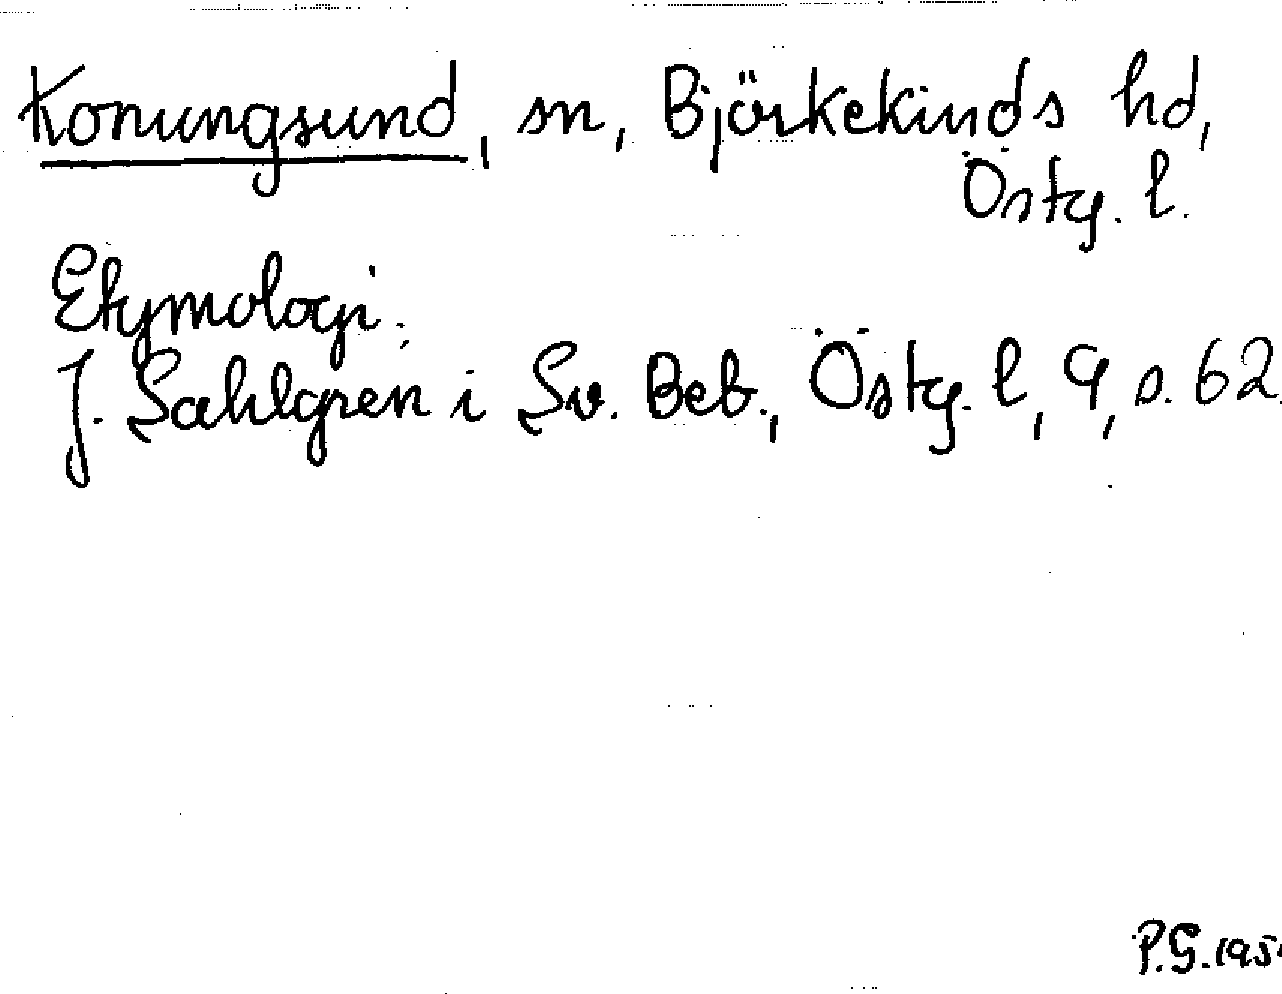 Konungsund, sn, Björkekinds hd,
Östg. l.
Etymologi:
J. Sahlgren i Sv. Beb., Östg. l, 9, s. 62.
P.G.